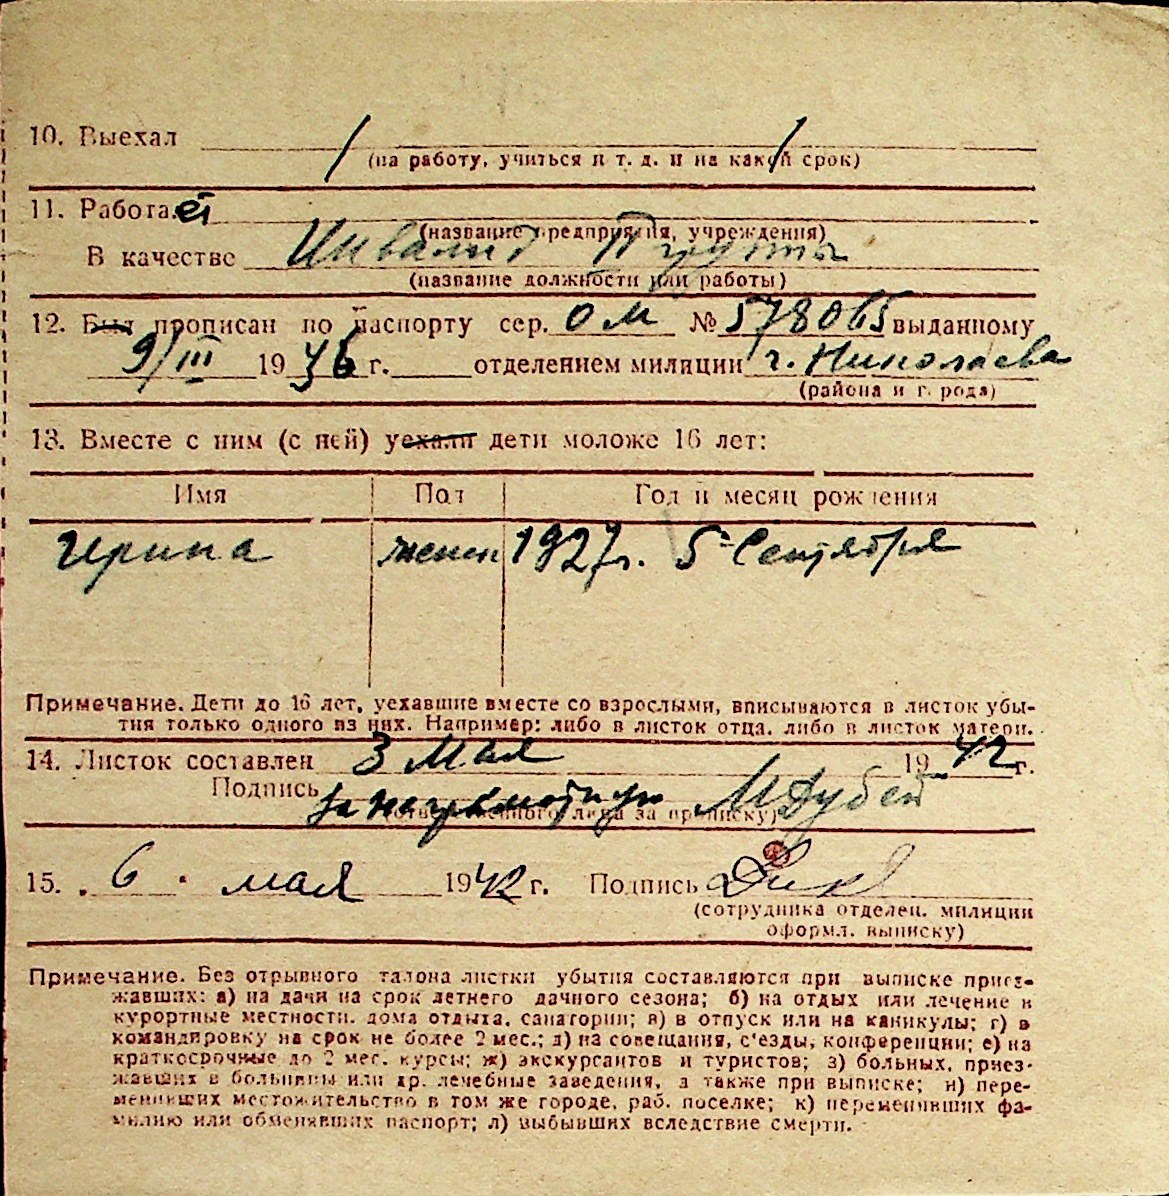 10. Выехал / /
(на работу, учиться и т. д. и на какой срок)
11. Работает
(название предприятия, учреждения)
В качестве Инвалид группы
(название должности или работы)
12. Был прописан по паспорту сер. ОМ № 578065 выданному
9/III 1936 г. отделением милиции г. Николаева
(района и города)
13. Вместе с ним (с ней) уехали дети моложе 16 лет:
Имя Пол Год и месяц рождения
Ирина женск 1927 г. 5 Сентября
Примечание. Дети до 16 лет, уехавшие вместе со взрослыми, вписываются в листок убы-
тия только одного из них. Например: либо в листок отца, либо в листок матери.
14. Листок составлен 3 Мая 1942 г.
Подпись за неграмотную
(ответственного лица за прописку)
15. 6 мая 1942 г. Подпись
(сотрудника отделен. милиции
оформл. выписку)
Примечание. Без отрывного талона листки убытия составляются при выписке приез-
жавших: а) на дачи на срок летнего дачного сезона; б) на отдых или лечение в
курортные местности, дома отдыха, санатории; в) в отпуск или на каникулы; г) в
командировку на срок не более 2 мес.; д) на совещания, с'езды, конференции; е) на
краткосрочные до 2 мес. курсы; ж) экскурсантов и туристов; з) больных, приез-
жавших в больницы или др. лечебные заведения, а также при выписке; и) пере-
менивших местожительство в том же городе, раб. поселке; к) переменивших фа-
милию или обменявших паспорт; л) выбывших вследствие смерти.